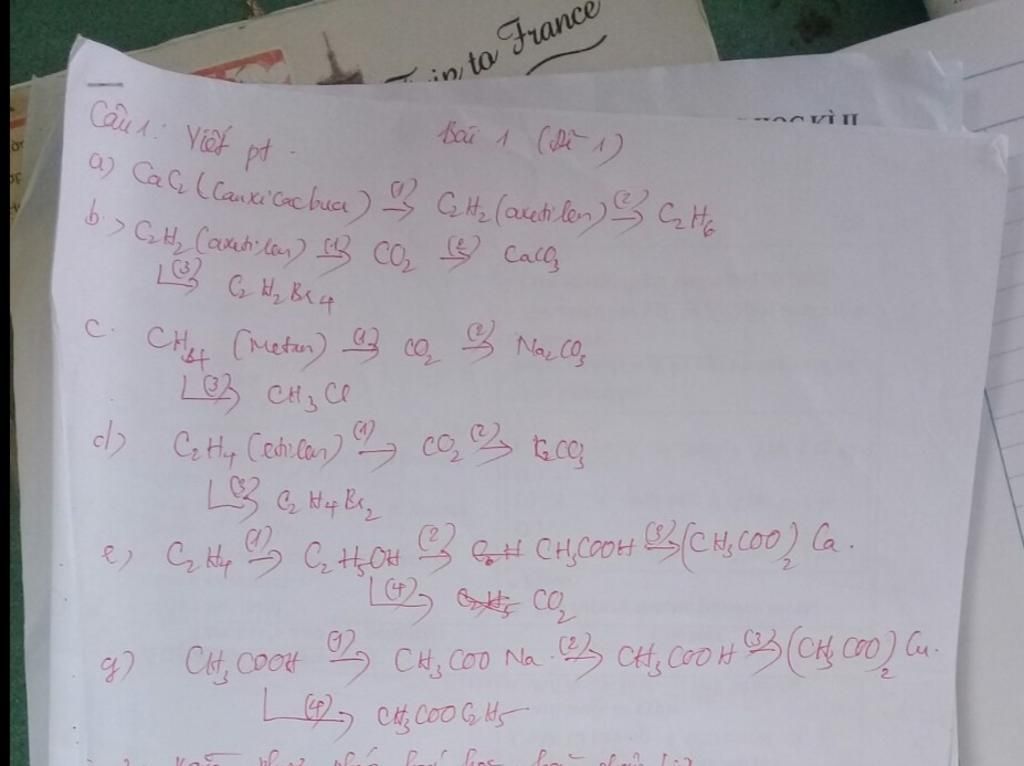 Trip to France
HỌC KÌ II
Câu 1: Viết pt. Bài 1 (Đề 1)
a) CaC2 (Canxi cacbua) (1)→ C2H2 (axetilen) (2)→ C2H6
b) C2H2 (axetilen) (1)→ CO2 (2)→ CaCO3
(3)→ C2H2Br4
c. CH4 (Metan) (1)→ CO2 (2)→ Na2CO3
(3)→ CH3Cl
d) C2H4 (etilen) (1)→ CO2 (2)→ K2CO3
(3)→ C2H4Br2
e) C2H4 (1)→ C2H5OH (2)→ CH3COOH (3)→ (CH3COO)2Ca.
(4)→ CO2
g) CH3COOH (1)→ CH3COONa (2)→ CH3COOH (3)→ (CH3COO)2Cu.
(4)→ CH3COOC2H5